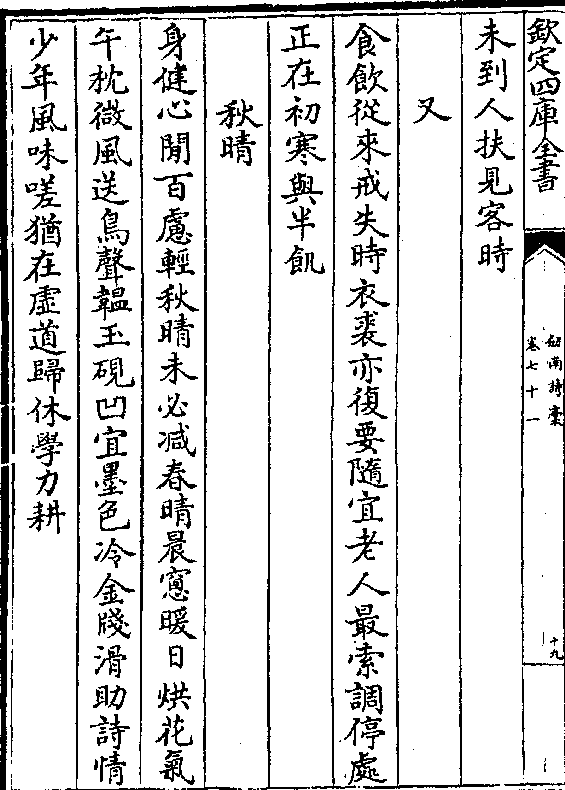 欽定四庫全書
劍南詩槀
卷七十一
十九
未到人扶見客時
又
食飲從來戒失時衣裘亦復要隨宜老人最索調停處
正在初寒與半飢
秋晴
身健心閒百慮輕秋晴未必减春晴晨窓暖日烘花氣
午枕微風送鳥聲韞玉硯凹宜墨色冷金牋滑助詩情
少年風味嗟猶在虛道歸休學力耕